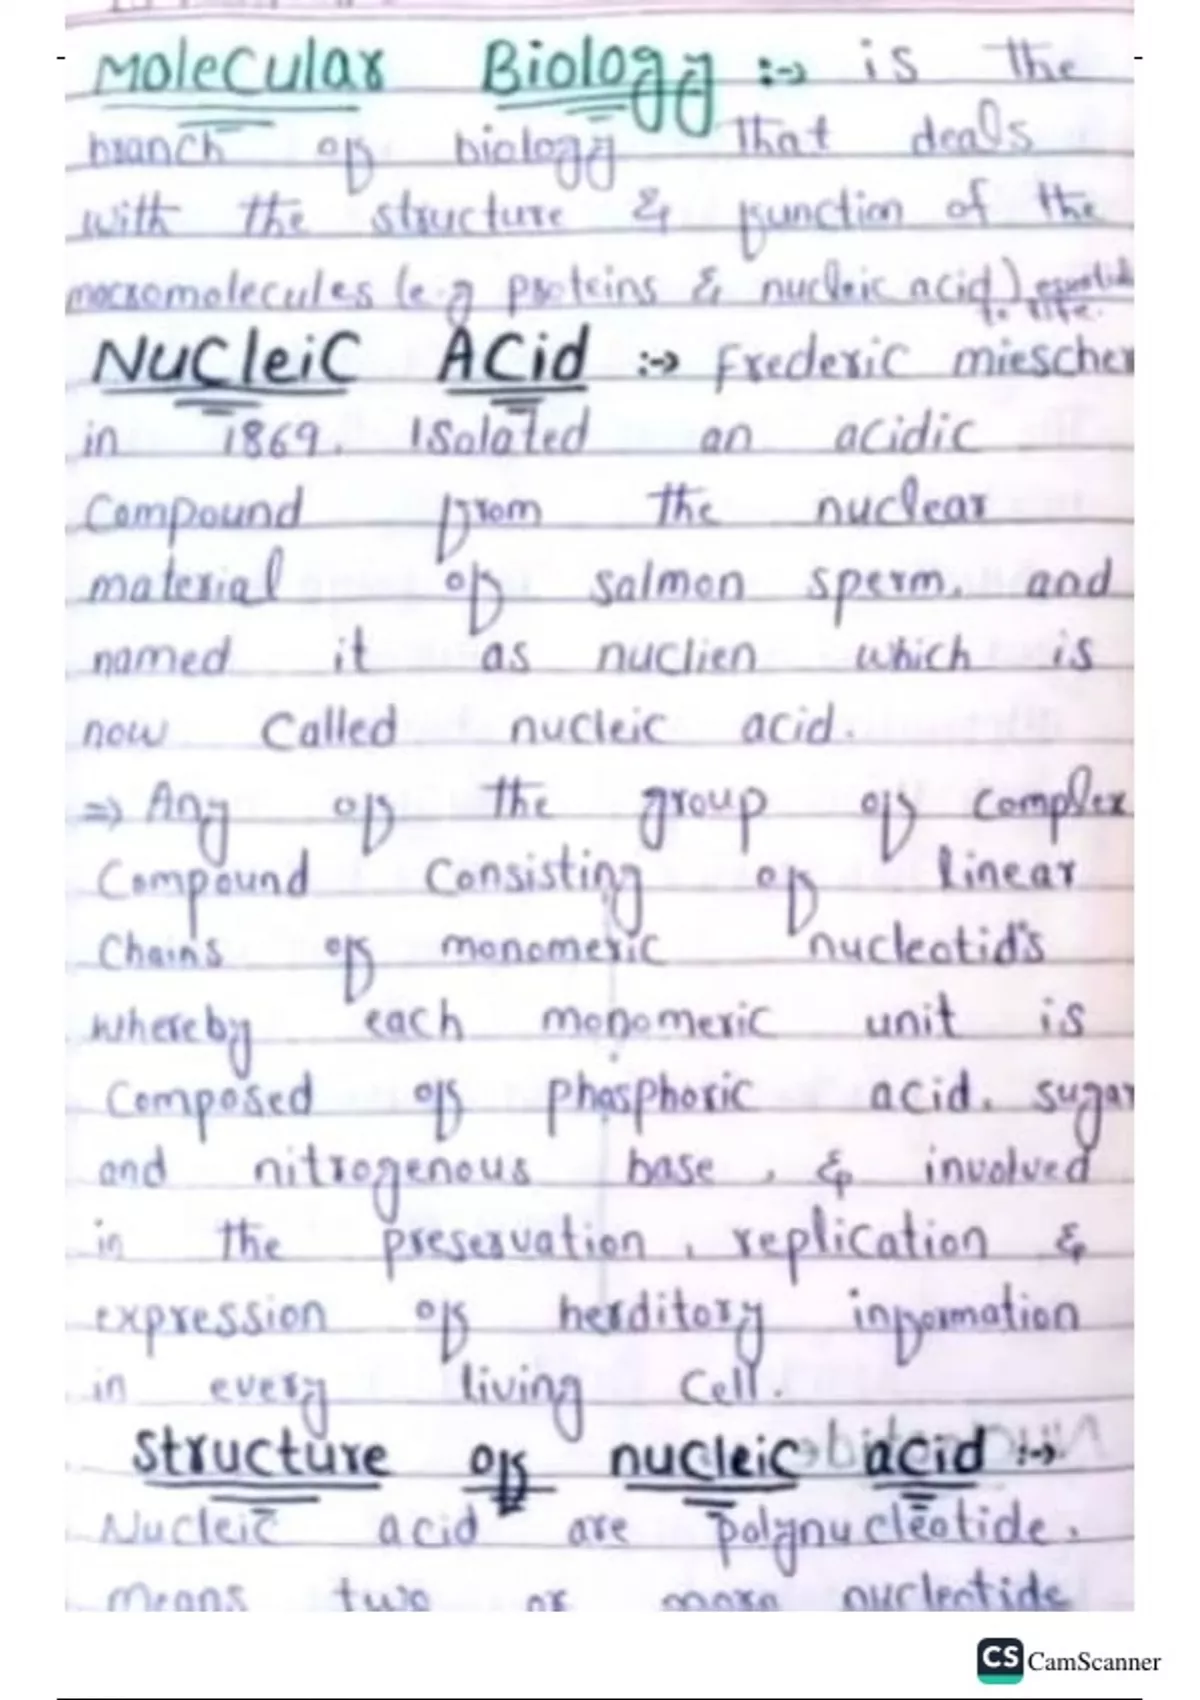 Molecular Biology :→ is the
branch of biology that deals
with the structure & function of the
macromolecules (e.g proteins & nucleic acid) essential
to life.
Nucleic Acid :→ Frederic miescher
in 1869. Isolated an acidic
Compound from the nuclear
material of salmon sperm. and
named it as nuclien which is
now Called nucleic acid.
⇒ Any of the group of Complex
Compound Consisting of linear
Chains of monomeric nucleotid's
whereby each monomeric unit is
Composed of phosphoric acid. sugar
and nitrogenous base, & involved
in the preservation, replication &
expression of herditory information
in every living Cell.
Structure of nucleic acid :→
Nucleic acid are polynucleotide.
means two or more nucleotide
CS CamScanner